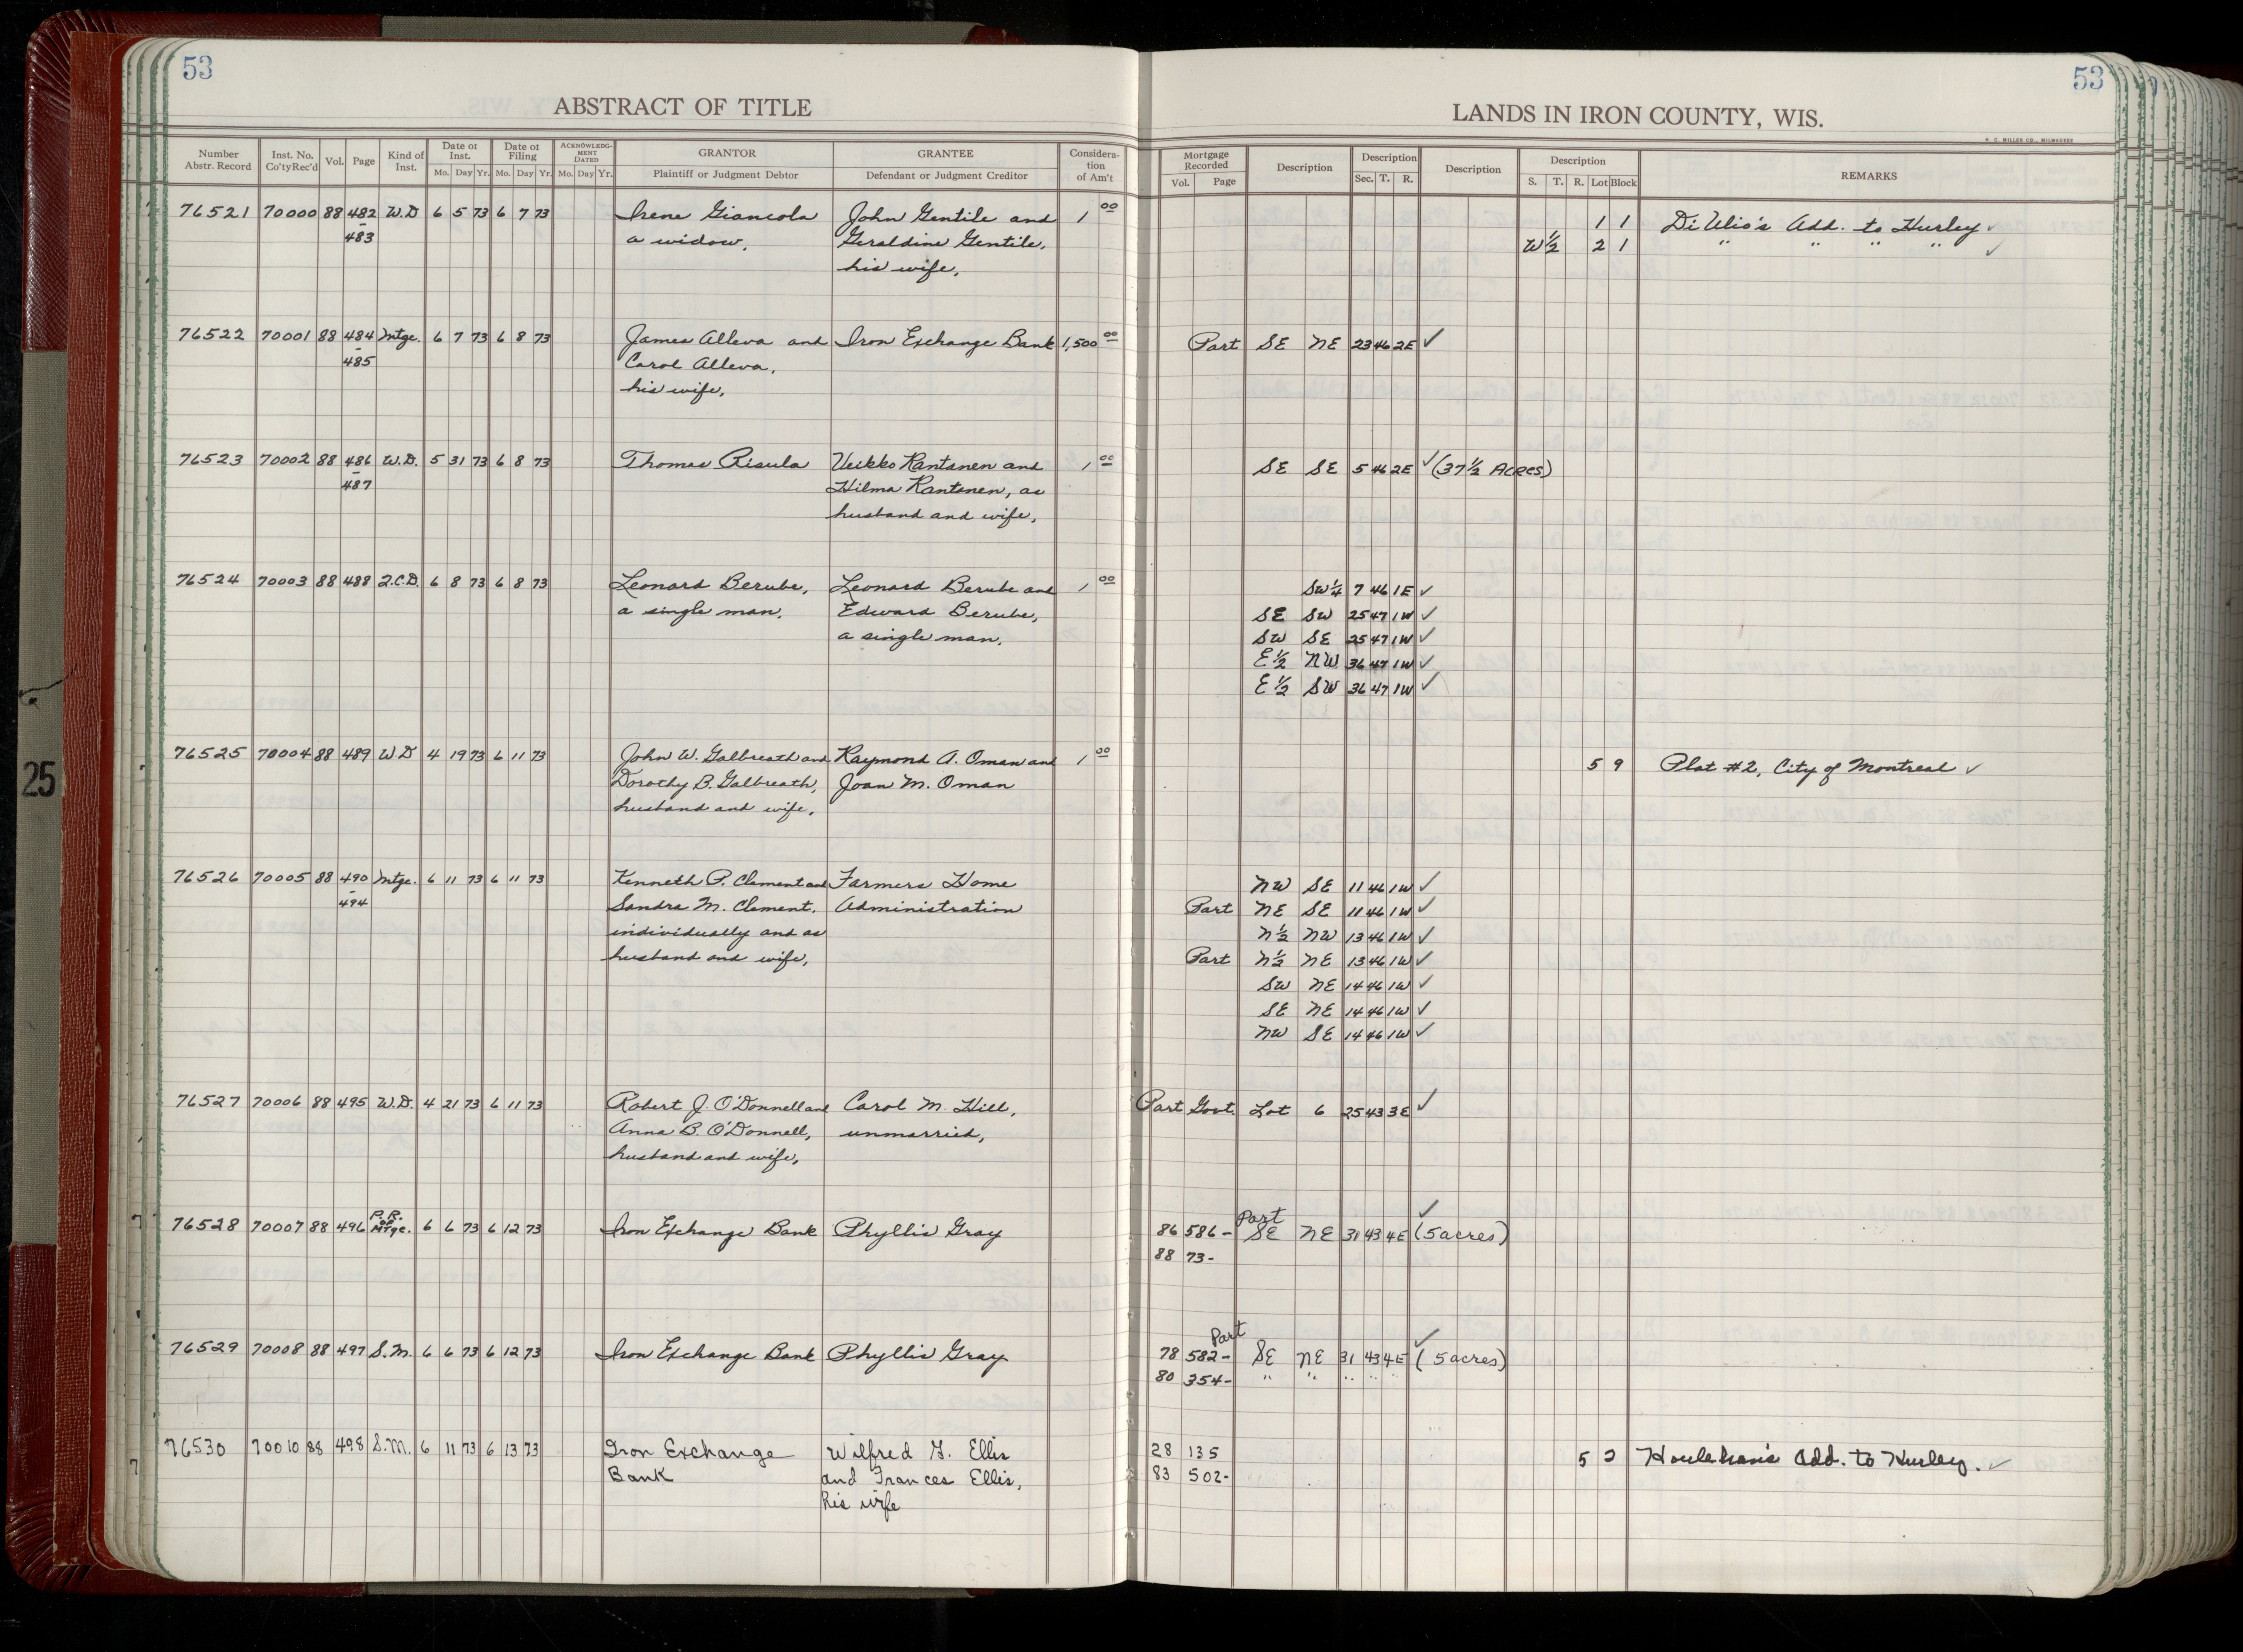 53
ABSTRACT OF TITLE
Number Abstr. Record | Inst. No. Co'ty Rec'd | Vol. | Page | Kind of Inst. | Date of Inst. Mo. Day Yr. | Date of Filing Mo. Day Yr. | ACKNOWLEDGMENT DATED Mo. Day Yr. | GRANTOR Plaintiff or Judgment Debtor | GRANTEE Defendant or Judgment Creditor | Consideration of Am't
53
LANDS IN IRON COUNTY, WIS.
H. C. MILLER CO., MILWAUKEE
Mortgage Recorded Vol. Page | Description | Description Sec. T. R. | Description | Description S. T. R. Lot Block | REMARKS
76521 70000 88 482 W.D 6 5 73 6 7 73 Irene Giancola John Gentile and 1 00 1 1 Di Ulio's Add. to Hurley ✓
- 483 a widow, Geraldine Gentile, W½ 2 1 " " " " ✓
his wife,
76522 70001 88 484 Mtge. 6 7 73 6 8 73 James Alleva and Iron Exchange Bank 1,500 00 Part SE NE 23 46 2E ✓
- 485 Carol Alleva,
his wife,
76523 70002 88 486 W.D. 5 31 73 6 8 73 Thomas Risula Veikko Rantanen and 1 00 SE SE 5 46 2E ✓ (37½ Acres)
- 487 Hilma Rantanen, as
husband and wife,
76524 70003 88 488 Q.C.D. 6 8 73 6 8 73 Leonard Berube, Leonard Berube and 1 00 SW¼ 7 46 1E ✓
a single man, Edward Berube, SE SW 25 47 1W ✓
a single man, SW SE 25 47 1W ✓
E½ NW 36 47 1W ✓
E½ SW 36 47 1W ✓
76525 70004 88 489 W.D 4 19 73 6 11 73 John W. Galbreath and Raymond A. Oman and 1 00 5 9 Plat #2, City of Montreal ✓
Dorothy B. Galbreath, Joan M. Oman
husband and wife,
76526 70005 88 490 Mtge. 6 11 73 6 11 73 Kenneth P. Clement and Farmers Home NW SE 11 46 1W ✓
- 494 Sandra M. Clement, Administration Part NE SE 11 46 1W ✓
individually and as N½ NW 13 46 1W ✓
husband and wife, Part N½ NE 13 46 1W ✓
SW NE 14 46 1W ✓
SE NE 14 46 1W ✓
NW SE 14 46 1W ✓
76527 70006 88 495 W.D. 4 21 73 6 11 73 Robert J. O'Donnell and Carol M. Hill, Part Govt. Lot 6 25 43 3E ✓
Anna B. O'Donnell, unmarried,
husband and wife,
76528 70007 88 496 P.R. of Mtge. 6 6 73 6 12 73 Iron Exchange Bank Phyllis Gray 86 586- Part SE NE 31 43 4E ✓ (5 acres)
88 73-
76529 70008 88 497 S.M. 6 6 73 6 12 73 Iron Exchange Bank Phyllis Gray 78 582- Part SE NE 31 43 4E ✓ (5 acres)
80 354- " " " " "
76530 70010 88 498 S.M. 6 11 73 6 13 73 Iron Exchange Wilfred G. Ellis 28 135 5 2 Houlehan's Add. to Hurley. ✓
Bank and Frances Ellis, 83 502-
his wife
25